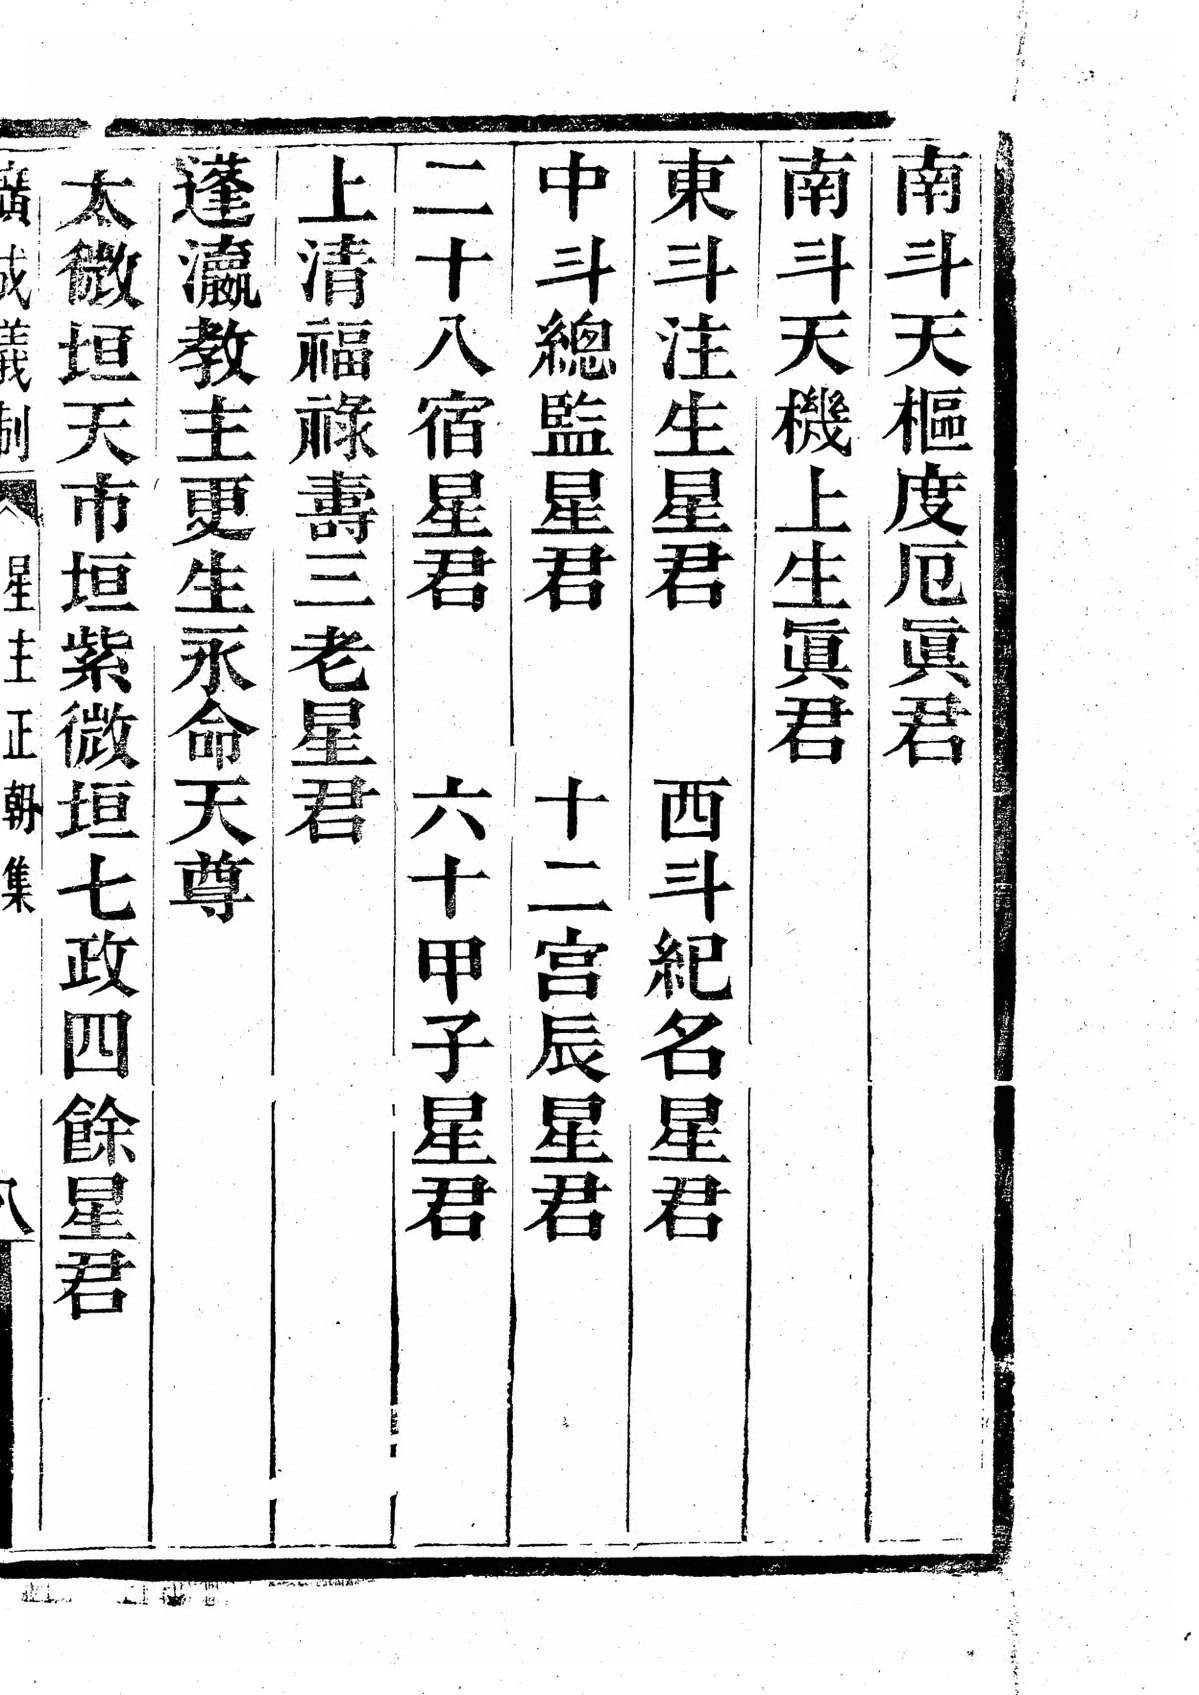 南斗天樞度厄眞君
南斗天機上生眞君
東斗注生星君　西斗紀名星君
中斗總監星君　十二宫辰星君
二十八宿星君　六十甲子星君
上清福祿壽三老星君
蓬瀛教主更生永命天尊
太微垣天市垣紫微垣七政四餘星君
廣成儀制　星主正朝集　八